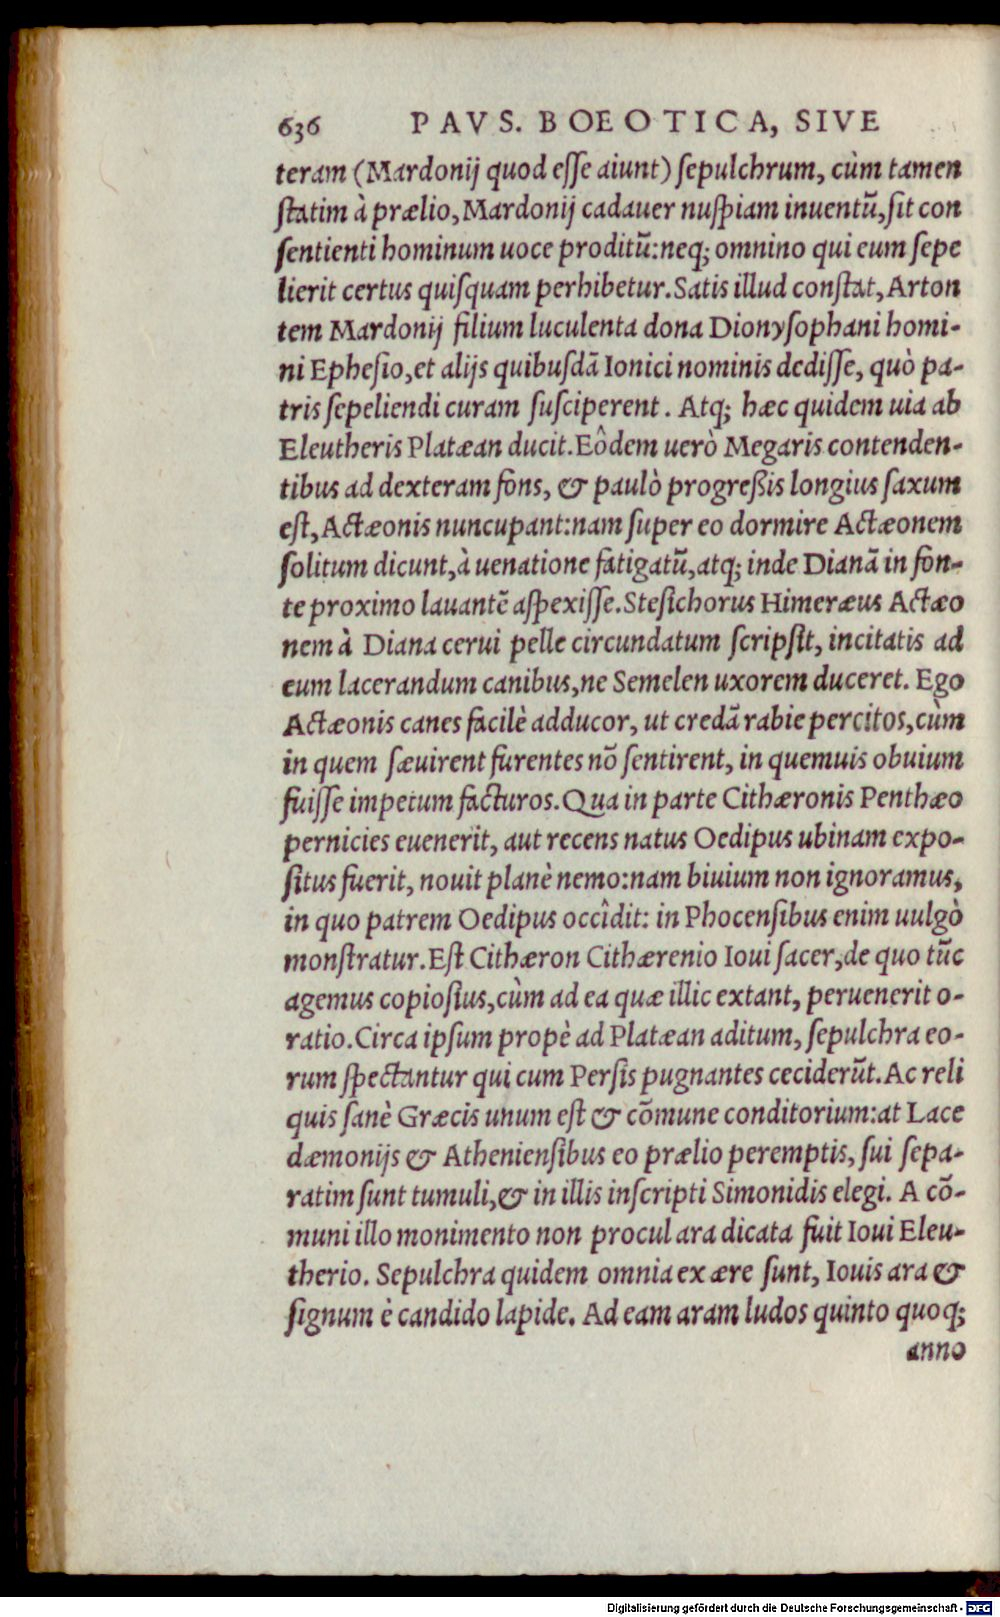 636 PAVS. BOEOTICA, SIVE
teram (Mardonij quod esse aiunt) sepulchrum, cùm tamen
statim à prælio, Mardonij cadauer nuspiam inuentũ, sit con
sentienti hominum uoce proditũ: neq; omnino qui eum sepe
lierit certus quisquam perhibetur. Satis illud constat, Arton
tem Mardonij filium luculenta dona Dionysophani homi-
ni Ephesio, et alijs quibusdã Ionici nominis dedisse, quò pa-
tris sepeliendi curam susciperent. Atq; hæc quidem uia ab
Eleutheris Platæan ducit. Eôdem uerò Megaris contenden-
tibus ad dexteram fons, & paulò progreßis longius saxum
est, Actæonis nuncupant: nam super eo dormire Actæonem
solitum dicunt, à uenatione fatigatũ, atq; inde Dianã in fon-
te proximo lauantẽ aspexisse. Stesichorus Himeræus Actæo
nem à Diana cerui pelle circundatum scripsit, incitatis ad
eum lacerandum canibus, ne Semelen uxorem duceret. Ego
Actæonis canes facilè adducor, ut credã rabie percitos, cùm
in quem sæuirent furentes nõ sentirent, in quemuis obuium
fuisse impetum facturos. Qua in parte Cithæronis Penthæo
pernicies euenerit, aut recens natus Oedipus ubinam expo-
situs fuerit, nouit planè nemo: nam biuium non ignoramus,
in quo patrem Oedipus occîdit: in Phocensibus enim uulgò
monstratur. Est Cithæron Cithærenio Ioui sacer, de quo tũc
agemus copiosius, cùm ad ea quæ illic extant, peruenerit o-
ratio. Circa ipsum propè ad Platæan aditum, sepulchra eo-
rum spectantur qui cum Persis pugnantes ceciderũt. Ac reli
quis sanè Græcis unum est & cõmune conditorium: at Lace
dæmonijs & Atheniensibus eo prælio peremptis, sui sepa-
ratim sunt tumuli, & in illis inscripti Simonidis elegi. A cõ-
muni illo monimento non procul ara dicata fuit Ioui Eleu-
therio. Sepulchra quidem omnia ex ære sunt, Iouis ara &
signum è candido lapide. Ad eam aram ludos quinto quoq;
anno
Digitalisierung gefördert durch die Deutsche Forschungsgemeinschaft - DFG